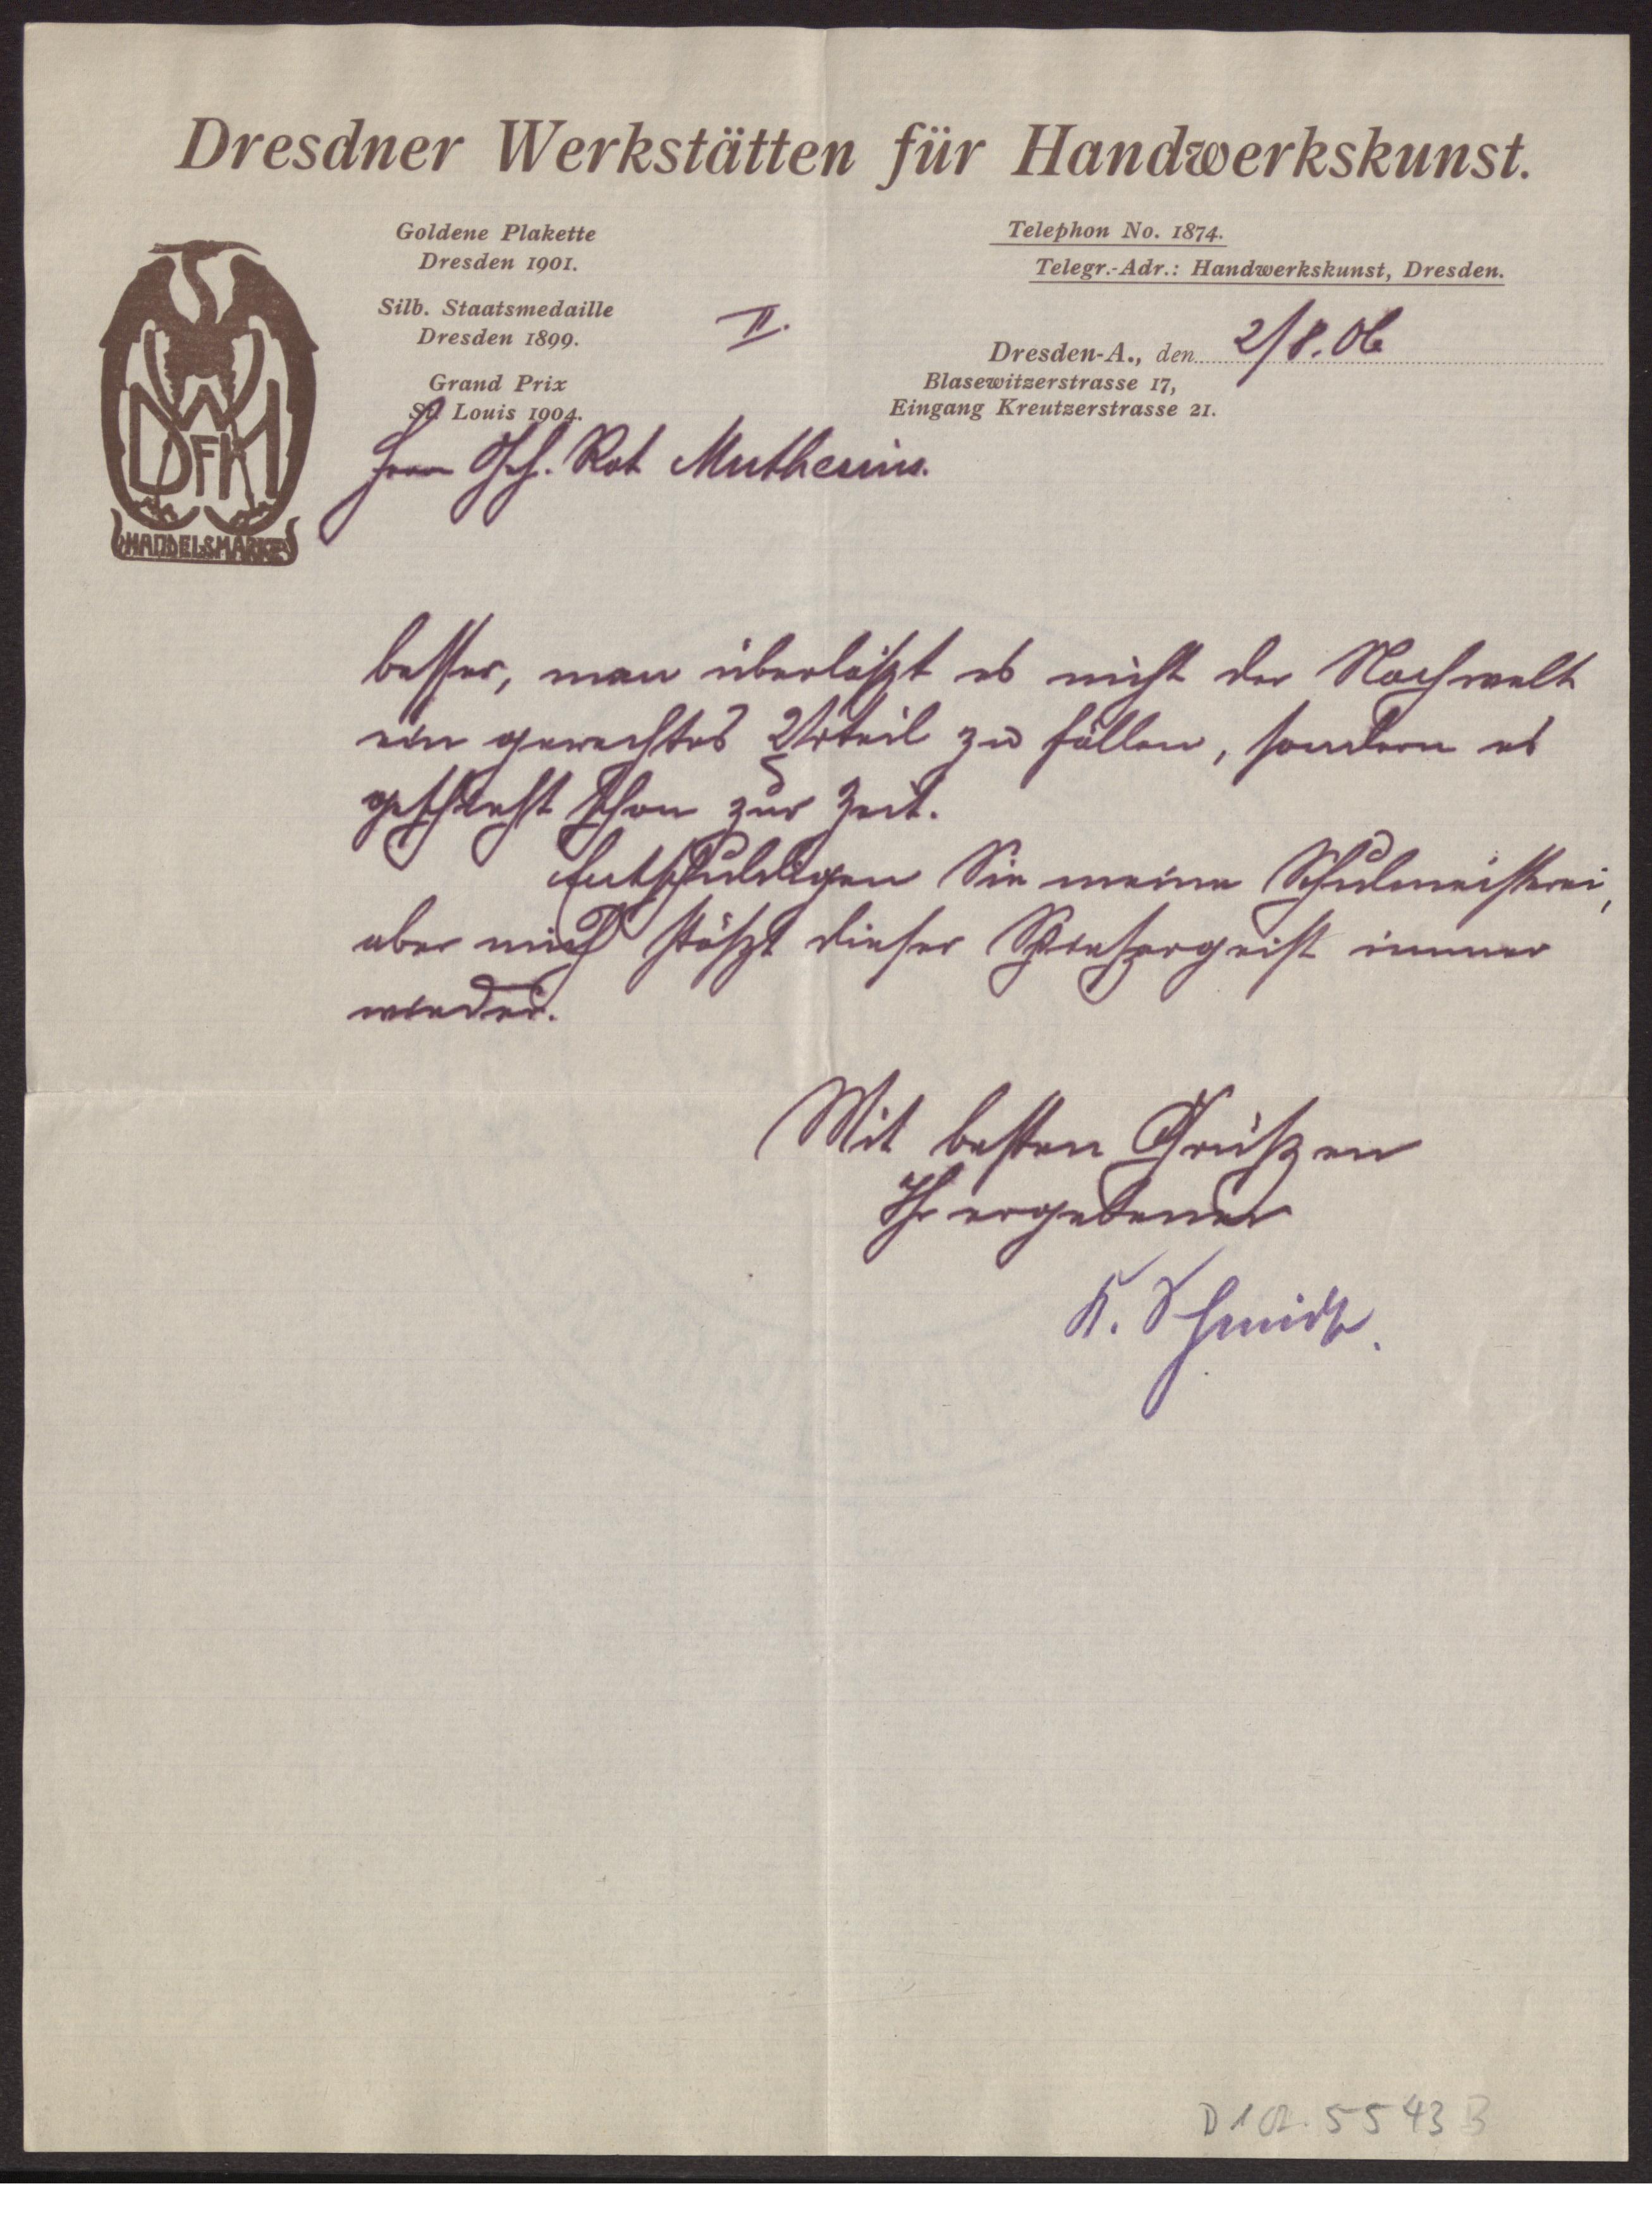 Dresdner Werkstätten für Handwerkskunst.
Goldene Plakette
Dresden 1901.
Silb. Staatsmedaille
Dresden 1899.
Grand Prix
St. Louis 1904.
DWFH
HANDELSMARKE
II.
Telephon No. 1874.
Telegr.-Adr.: Handwerkskunst, Dresden.
Dresden-A., den 2/8. 06
Blasewitzerstrasse 17,
Eingang Kreutzerstrasse 21.
Herrn Geh. Rat Muthesius.
besser, man überläßt es nicht der Nachwelt
ein gerechtes Urteil zu fällen, sondern es
geschieht schon zur Zeit.
Entschuldigen Sie meine Schulmeisterei,
aber mich stößt dieser immer
wieder.
Mit besten Grüßen
Ihr ergebener
K. Schmidt.
D 102. 5543 B